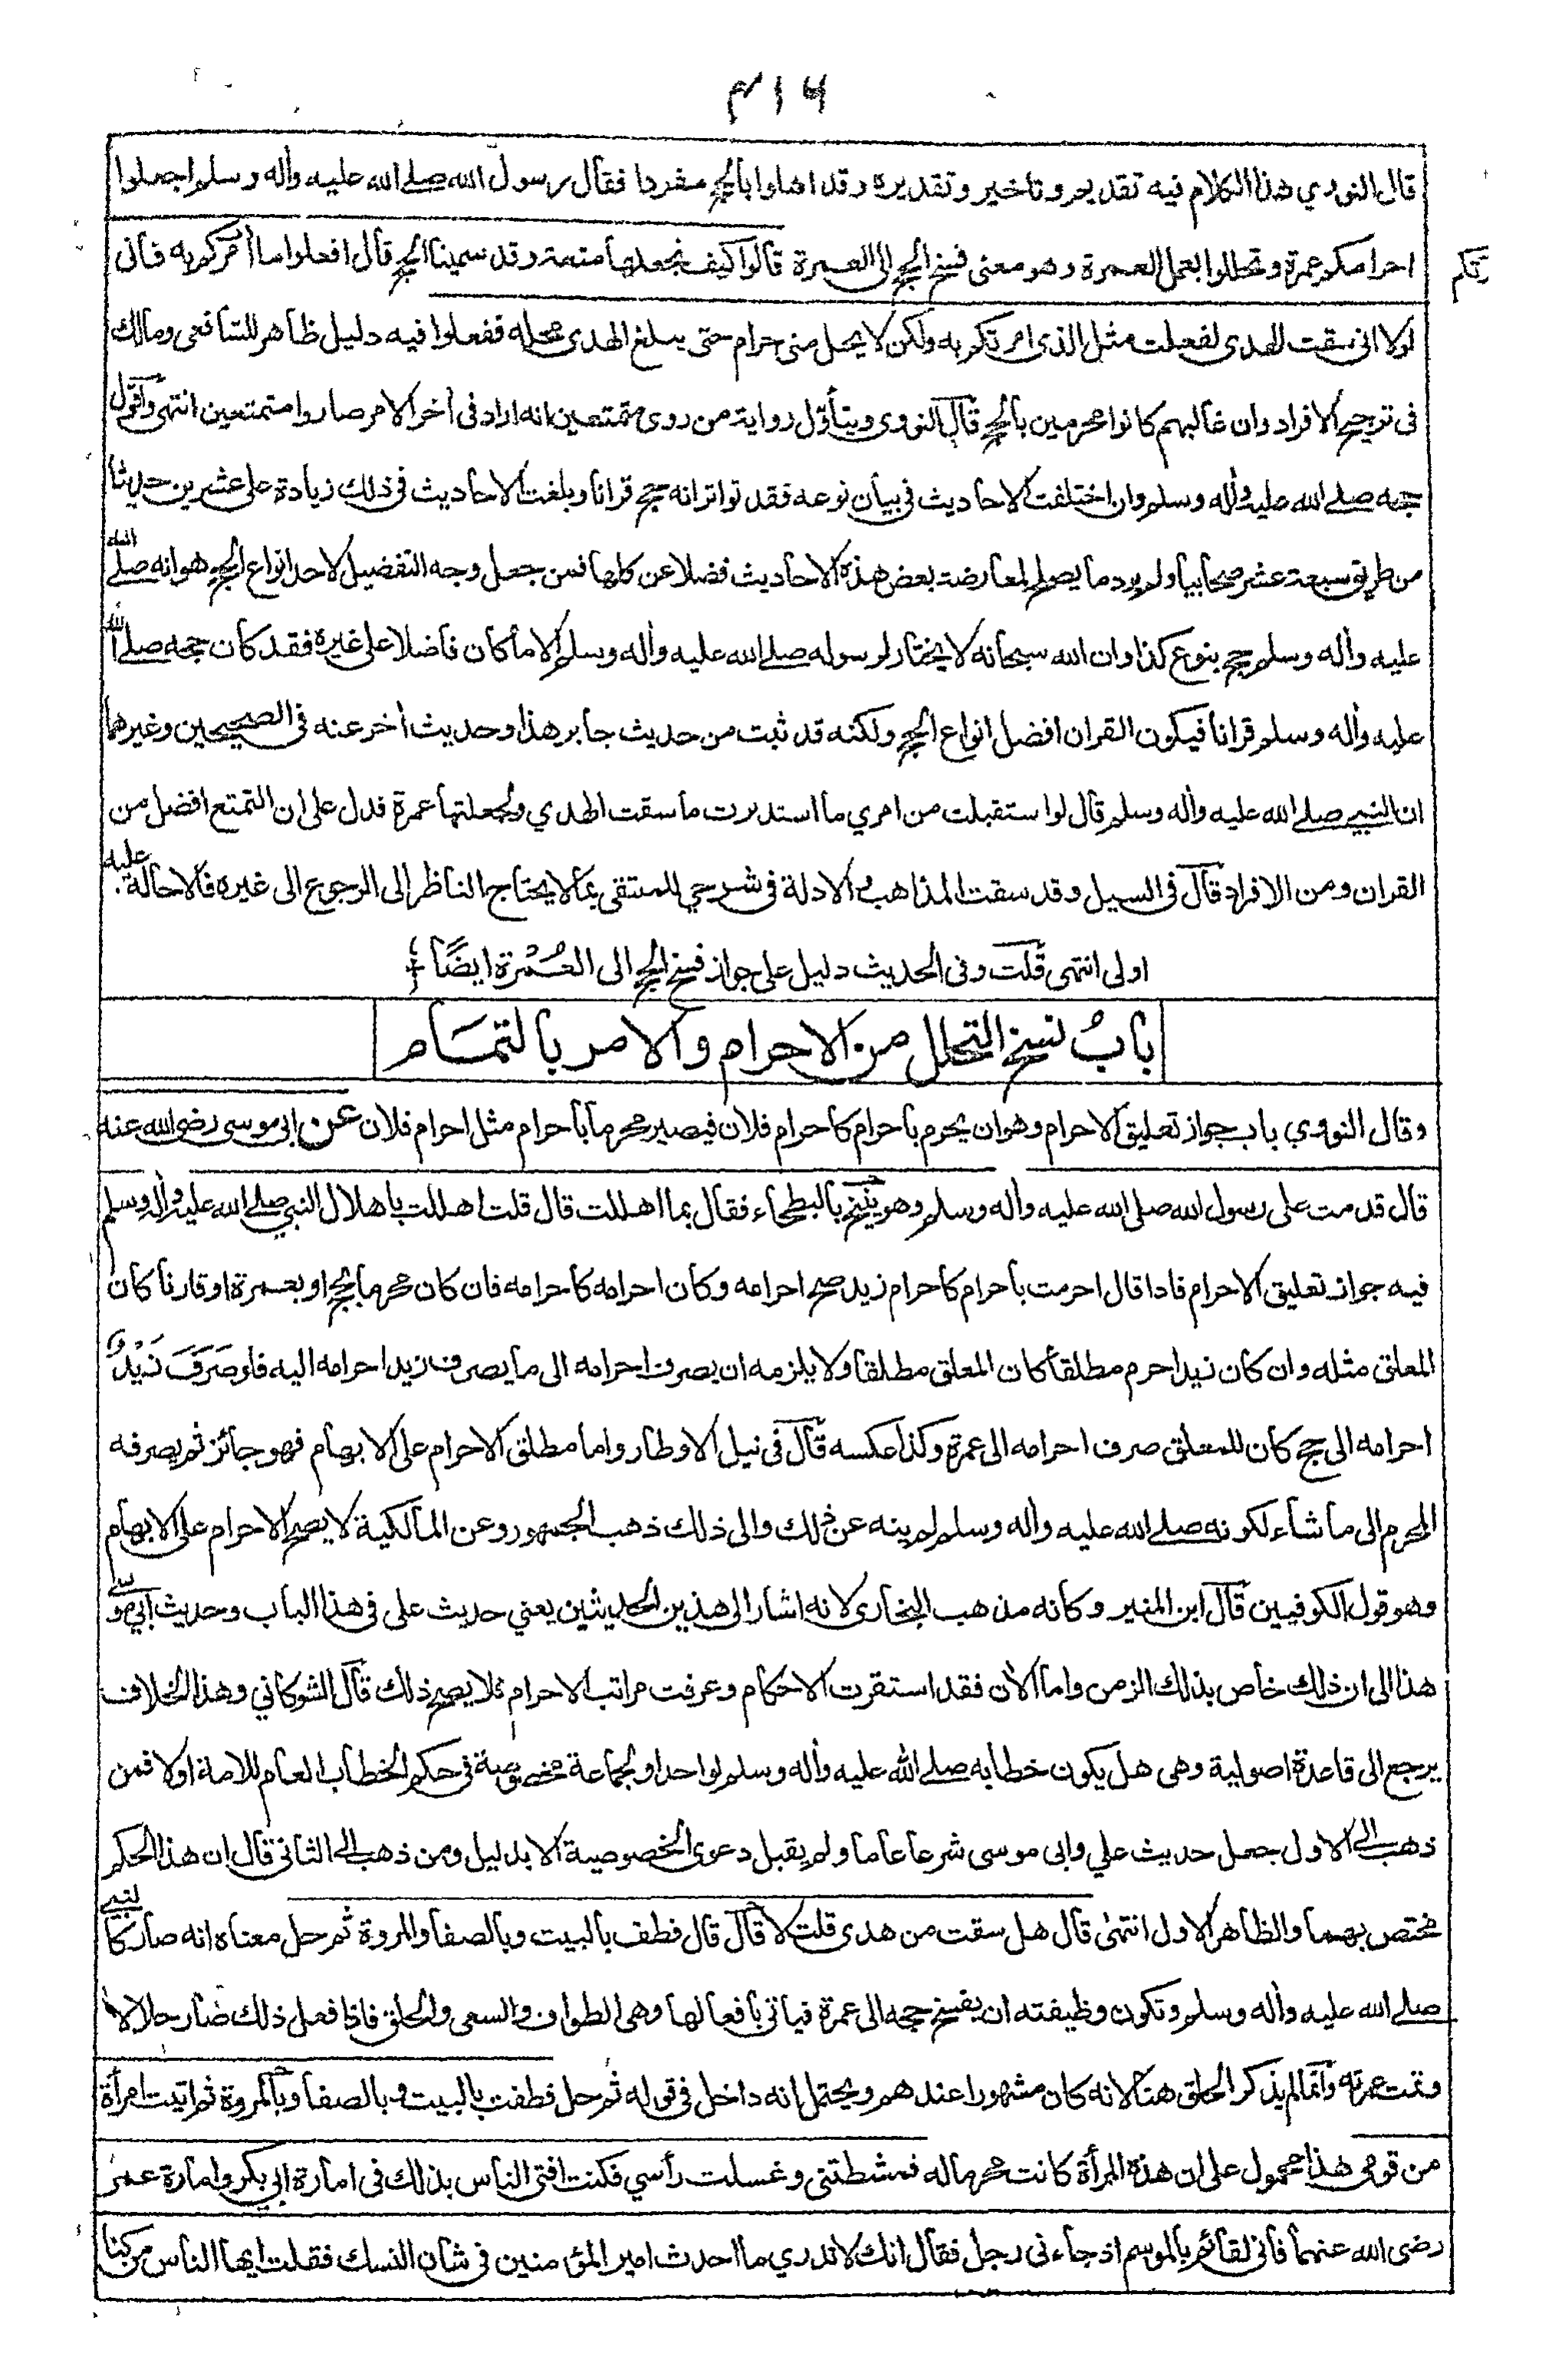 ٤١٦
قال النووي هذا الكلام فيه تقديم وتاخير وتقديره وقد اهلوا بالحج مفردا فقال رسول الله صلى الله عليه وأله وسلم اجعلوا
احرامكم عمرة وتحللوا بعمل العمرة وهو معنى فسخ الحج الى العمرة قالوا كيف نجعلها متعة وقد سمينا الحج قال افعلوا ما أمركم به فانى
رتكم
لولا انى سقت الهدى لفعلت مثل الذى امرتكم به ولكن لا يحل منى حرام حتى يبلغ الهدى محله ففعلوا فيه دليل ظاهر للشافعى ومالك
فى ترجيح الافراد وان غالبهم كانوا محرمين بالحج قال النووى ويتأول رواية من روى متمتعين انه اراد فى أخر الامر صاروا متمتعين انتهى واقول
حجه صلى الله عليه وأله وسلم وان اختلفت الاحاديث فى بيان نوعه فقد تواتر انه حج قرانا وبلغت الاحاديث فى ذلك زيادة على عشرين حديثا
من طريق سبعة عشر صحابيا ولم يرد ما يصلح لمعارضة بعض هذه الاحاديث فضلا عن كلها فمن جعل وجه التفضيل لاحد انواع الحج هو انه صلى الله
عليه وأله وسلم حج بنوع كذا وان الله سبحانه لا يختار لرسوله صلى الله عليه وأله وسلم الا ما كان فاضلا على غيره فقد كان حجه صلى الله
عليه وأله وسلم قرانا فيكون القران افضل انواع الحج ولكنه قد ثبت من حديث جابر هذا وحديث أخر عنه فى الصحيحين وغيرهما
ان النبي صلى الله عليه وأله وسلم قال لو استقبلت من امري ما استدبرت ما سقت الهدي ولجعلتها عمرة فدل على ان التمتع افضل من
القران ومن الافراد قال فى السيل وقد سقت المذاهب والادلة فى شرحي للمنتقى بما لا يحتاج الناظر الى الرجوع الى غيره فالاحالة عليه
اولى انتهى قلت وفى الحديث دليل على جواز فسخ الحج الى العُمْرة ايضًا
بابُ نسخ التحلل من الاحرام والامر بالتمام
وقال النووي باب جواز تعليق الاحرام وهو ان يحرم باحرام كاحرام فلان فيصير محرما باحرام مثل احرام فلان عن ابى موسى رضى الله عنه
قال قدمت على رسول الله صلى الله عليه وأله وسلم وهو منيخ بالبطحاء فقال بما اهللت قال قلت اهللت باهلال النبي صلى الله عليه وأله وسلم
فيه جواز تعليق الاحرام فاذا قال احرمت باحرام كاحرام زيد صح احرامه وكان احرامه كاحرامه فان كان محرما بحج او بعمرة او قارنا كان
المعلق مثله وان كان زيد احرم مطلقا كان المعلق مطلقا ولا يلزمه ان يصرف احرامه الى ما يصرف زيد احرامه اليه فلو صَرَفَ زَيْدٌ
احرامه الى حج كان للمعلق صرف احرامه الى عمرة وكذا عكسه قال فى نيل الاوطار واما مطلق الاحرام على الابهام فهو جائز ثم يصرفه
المحرم الى ما شاء لكونه صلى الله عليه وأله وسلم لم ينه عن ذلك والى ذلك ذهب الجمهور وعن المالكية لا يصح الاحرام على الابهام
وهو قول الكوفيين قال ابن المنير وكانه مذهب البخارى لانه اشار الى هذين الحديثين يعني حديث على فى هذا الباب وحديث ابي موسى
هذا الى ان ذلك خاص بذلك الزمن واما الأن فقد استقرت الاحكام وعرفت مراتب الاحرام فلا يصح ذلك قال الشوكاني وهذا الخلاف
يرجع الى قاعدة اصولية وهى هل يكون خطابه صلى الله عليه وأله وسلم لواحد او لجماعة مخصوصة فى حكم الخطاب العام للامة اولا فمن
ذهب الى الاول جعل حديث علي وابى موسى شرعا عاما ولم يقبل دعوى الخصوصية الا بدليل ومن ذهب الى الثانى قال ان هذا الحكم
مختص بهما والظاهر الاول انتهى قال هل سقت من هدى قلت لا قال قال فطف بالبيت وبالصفا والمروة ثم حل معناه انه صار كالنبي
صلى الله عليه وأله وسلم وتكون وظيفته ان يفسخ حجه الى عمرة فياتى بأفعالها وهى الطواف والسعى والحلق فاذا فعل ذلك صار حلالا
وتمت عمرته وانما لم يذكر الحلق هنا لانه كان مشهورا عندهم ويحتمل انه داخل فى قوله ثم حل فطفت بالبيت وبالصفا وبالمروة ثم اتيت امرأة
من قومى هذا محمول على ان هذه المرأة كانت محرما له فمشطتنى وغسلت رأسي فكنت افتى الناس بذلك فى امارة ابي بكر وامارة عمر
رضى الله عنهما فانى لقائم بالموسم اذ جاءنى رجل فقال انك لا تدري ما احدث امير المؤمنين فى شان النسك فقلت ايها الناس من كنا